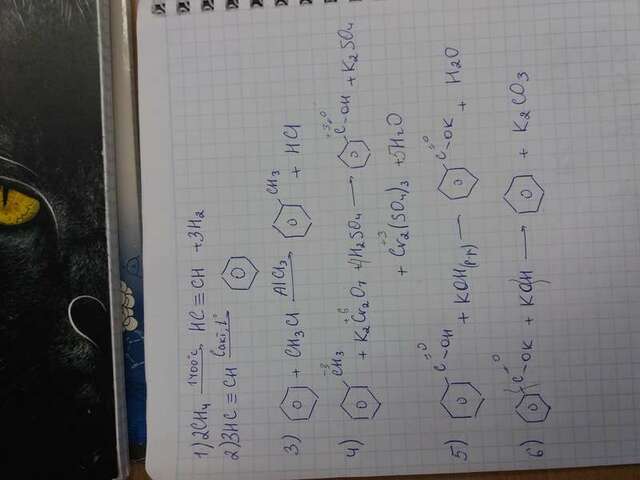 1) 2CH₄ —1400°C→ HC≡CH + 3H₂
2) 3HC≡CH —Cакт, t°→
3) + CH₃Cl —AlCl₃→ CH₃ + HCl
4) ⁻³CH₃ + K₂⁺⁶Cr₂O₇ + 4H₂SO₄ → ⁺³C=O–OH + K₂SO₄
+ ⁺³Cr₂(SO₄)₃ + 5H₂O
5) C=O–OH + KOH(р-р) → C=O–OK + H₂O
6) C=O–OK + KOH → + K₂CO₃